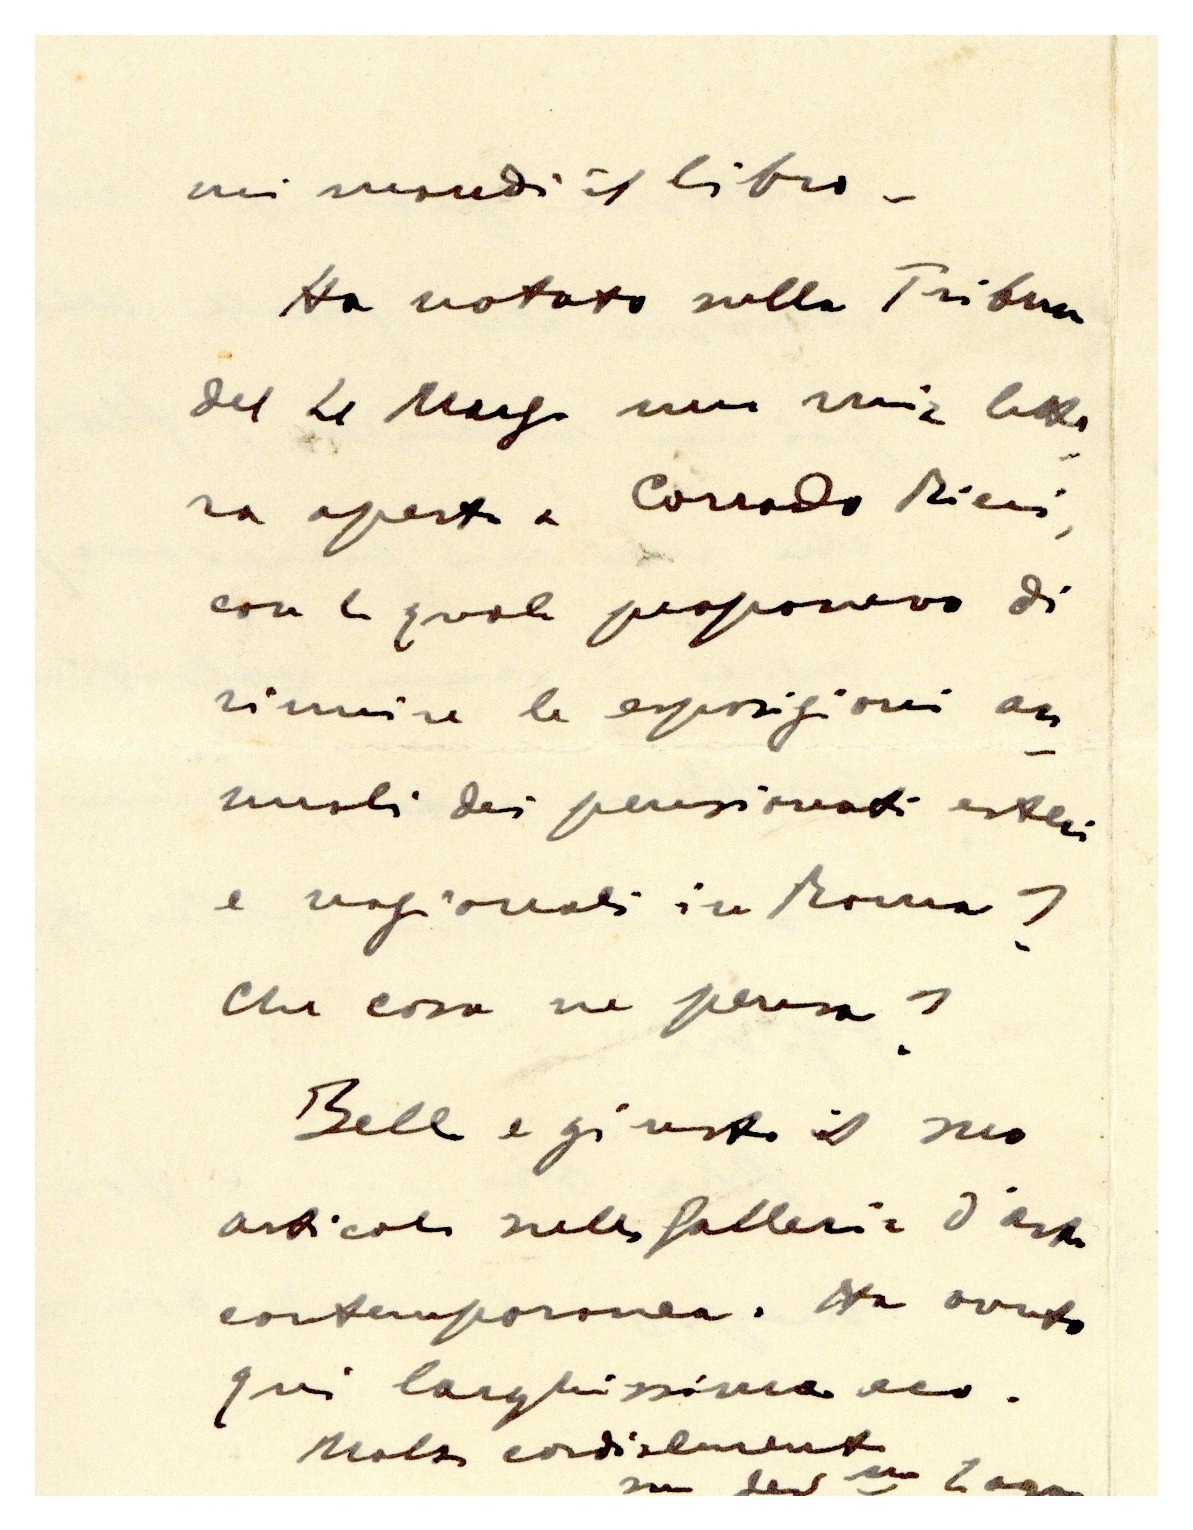 mi mandi il libro –
Ha notato sulla Tribuna
del 21 Marzo una mia lette-
ra aperta a Corrado Ricci,
con la quale proponevo di
riunire le esposizioni an-
nuali dei pensionati esteri
e nazionali in Roma?
Che cosa ne pensa?
Bello e giusto il suo
articolo sulla Galleria d'arte
contemporanea. Ha avuto
qui larghissima eco.
Molto cordialmente
suo dev mo